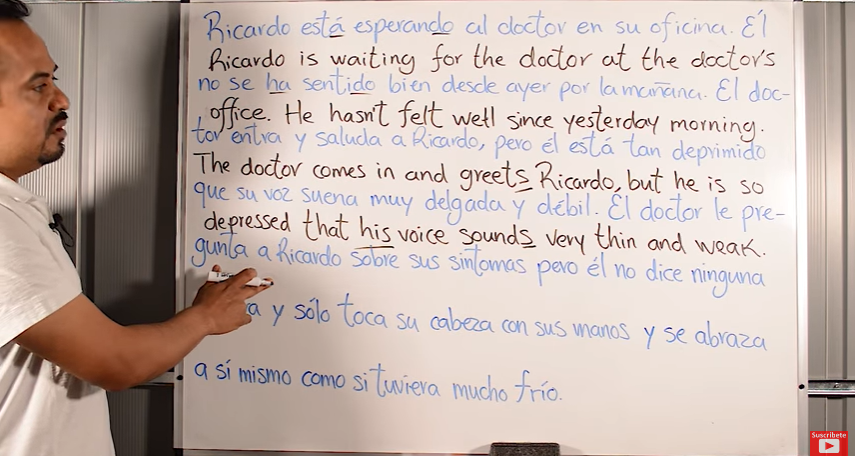 Ricardo está esperando al doctor en su oficina. Él
Ricardo is waiting for the doctor at the doctor's
no se ha sentido bien desde ayer por la mañana. El doc-
office. He hasn't felt well since yesterday morning.
tor entra y saluda a Ricardo, pero él está tan deprimido
The doctor comes in and greets Ricardo, but he is so
que su voz suena muy delgada y débil. El doctor le pre-
depressed that his voice sounds very thin and weak.
gunta a Ricardo sobre sus sintomas pero él no dice ninguna
y sólo toca su cabeza con sus manos y se abraza
a sí mismo como si tuviera mucho frío.
Suscríbete